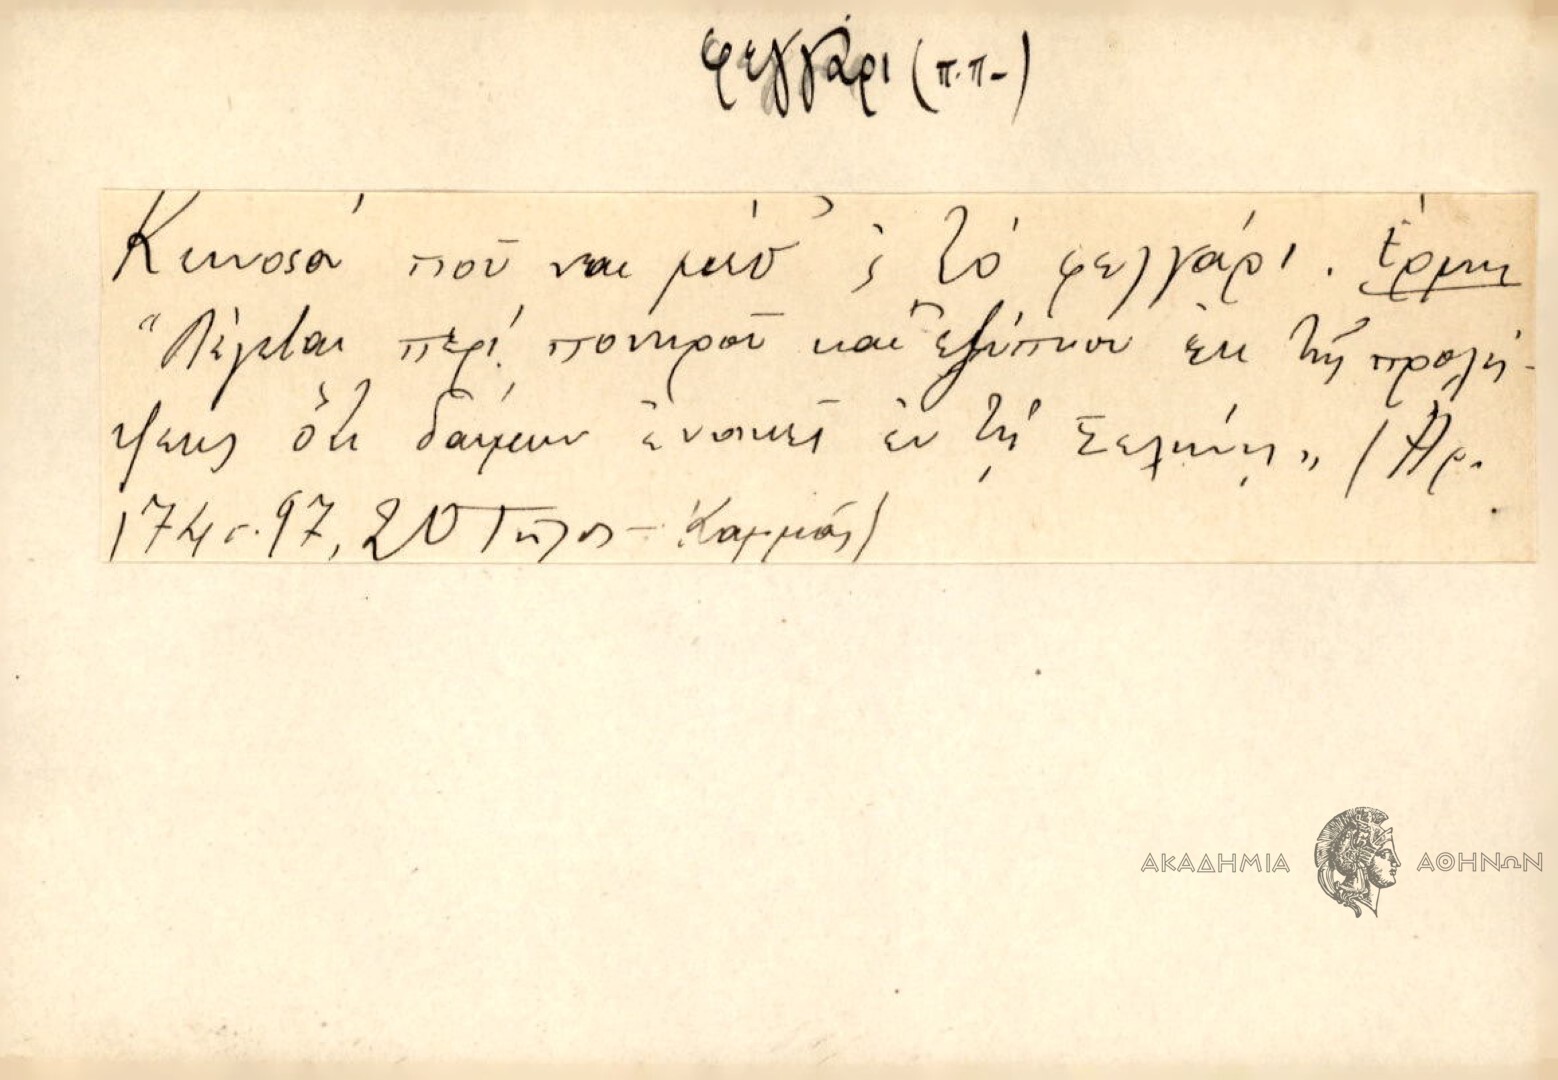 φεγγάρι (π.π.)
που ναι μέσ' ς τὸ φεγγάρι. Ἑρμην
"Λέγεται περὶ πονηροῦ καὶ ἐξύπνου ἐκ τῆς προλή-
ψεως ὅτι δαίμων ἐνοικεῖ ἐν τῇ Σελήνῃ„ (Ἀρ.
174 σ. 97, 20 Τῆλος - Καμμάς)
ΑΚΑΔΗΜΙΑ ΑΘΗΝΩΝ